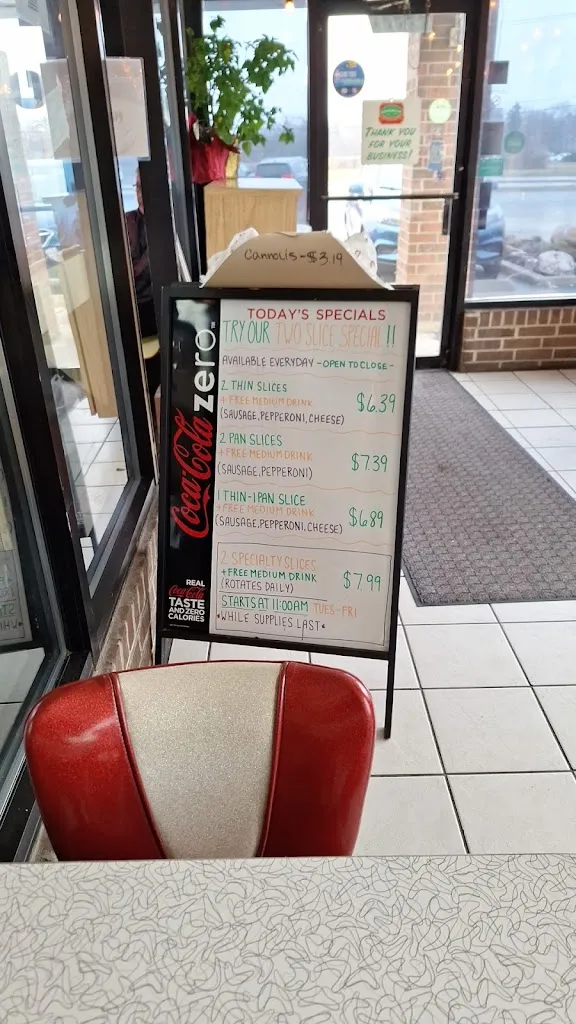 THANK YOU
FOR YOUR
BUSINESS!
CANNOLIS-$3.19
TODAY'S SPECIALS
TRY OUR TWO SLICE SPECIAL!!
AVAILABLE EVERYDAY -OPEN TO CLOSE-
2 THIN SLICES
+ FREE MEDIUM DRINK
$6.39
(SAUSAGE, PEPPERONI, CHEESE)
2 PAN SLICES
+ FREE MEDIUM DRINK
$7.39
(SAUSAGE, PEPPERONI)
1 THIN-1 PAN SLICE
+ FREE MEDIUM DRINK
$6.89
(SAUSAGE, PEPPERONI, CHEESE)
2 SPECIALTY SLICES
+ FREE MEDIUM DRINK
$7.99
(ROTATES DAILY)
STARTS AT 11:00AM TUES-FRI
*WHILE SUPPLIES LAST*
Coca-Cola zero
REAL
Coca-Cola
TASTE
AND ZERO
CALORIES